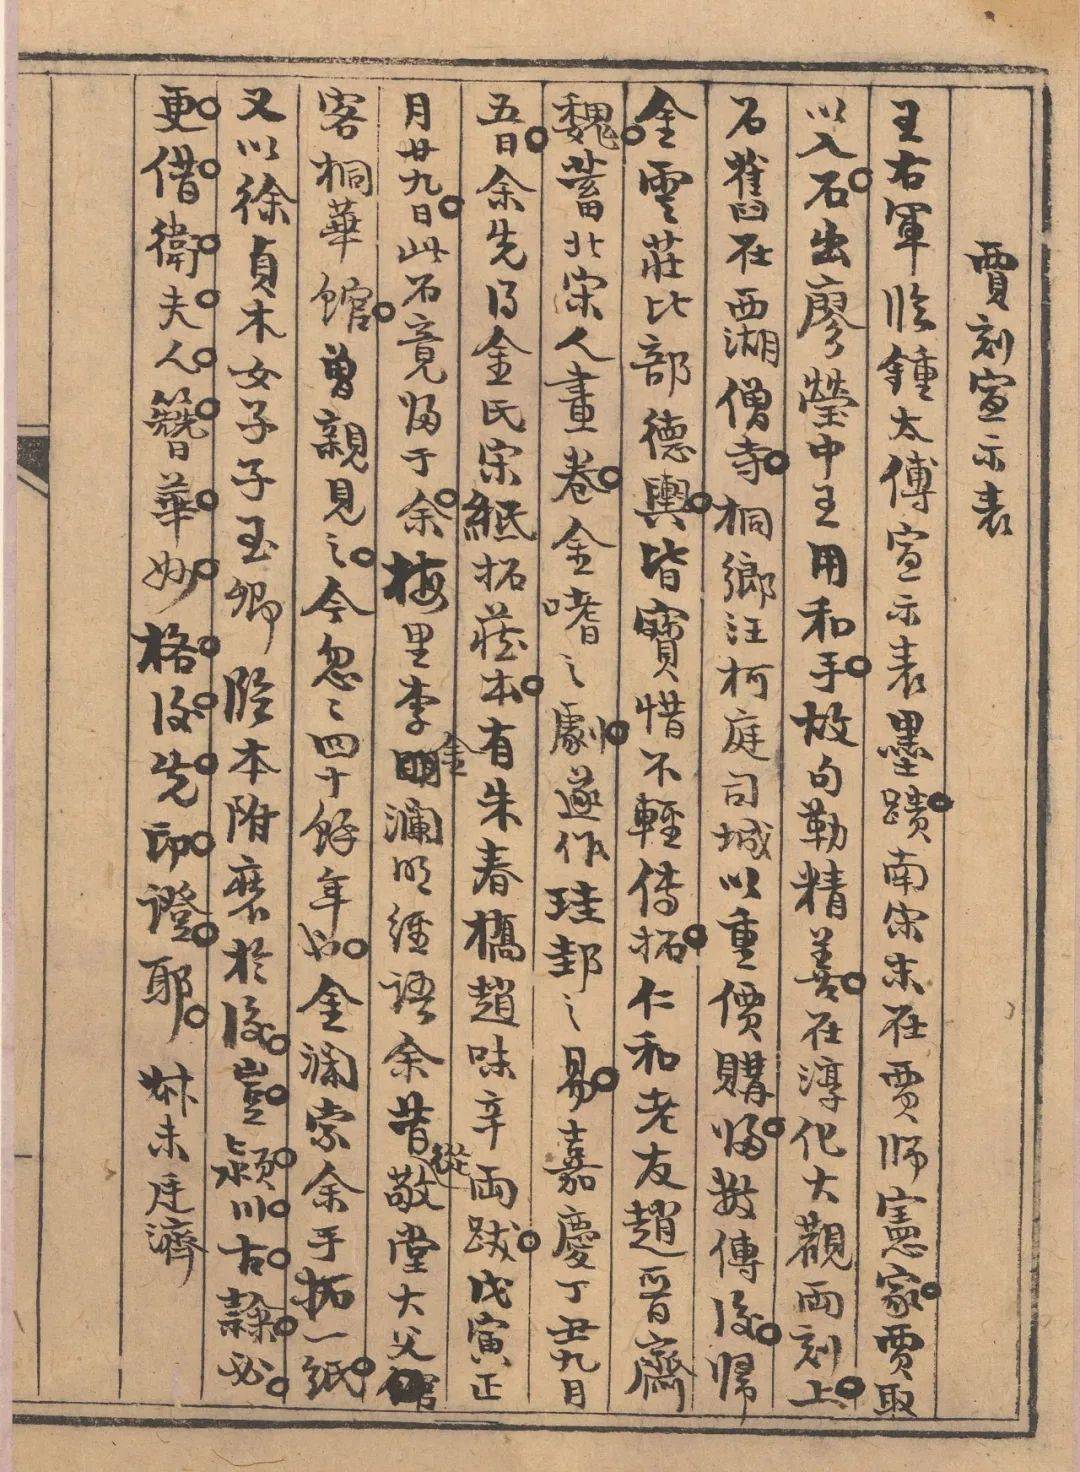 賈刻宣示表
王右軍臨鍾太傅宣示表墨蹟南宋末在賈師憲家賈取
以入石出廖瑩中王用和手故句勒精善在淳化大觀兩刻上
石舊在西湖僧寺桐鄉汪柯庭司城以重價購歸數傳後歸
金雲莊比部德輿皆寶惜不輕傳拓仁和老友趙晉齋
魏蓄北宋人畫卷金嗜之劇遂作珪邽之易嘉慶丁丑九月
五日余先得金氏宋紙拓藏本有朱春橋趙味辛兩跋戊寅正
月廿九日此石竟歸于余梅里李金瀾明經語余昔從敬堂大父
客桐華館曾親見之今忽〻四十餘年也金瀾索余手拓一紙
又以徐貞木女子子玉卿臨本附裝於後豈潁川古隸必
更借衛夫人簪華妙格後先印證耶 叔未廷濟